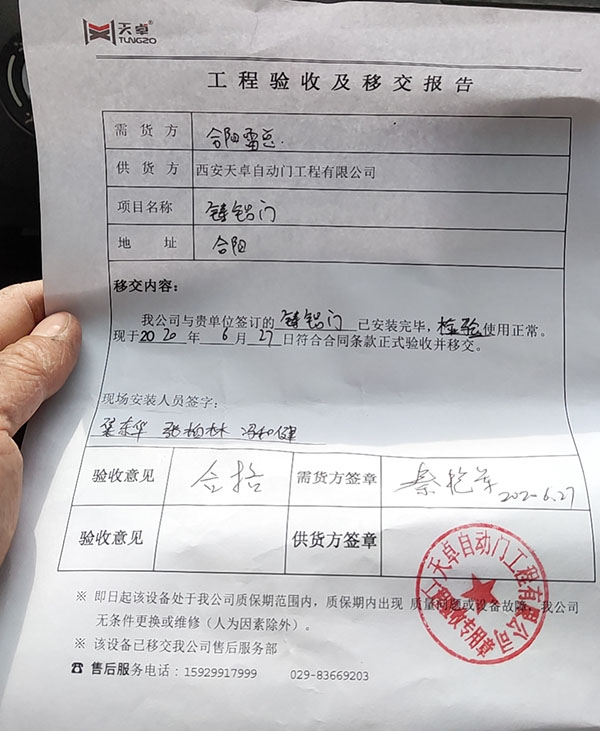 天卓
TUNGZO
工程验收及移交报告
需货方 合阳雷总.
供货方 西安天卓自动门工程有限公司
项目名称 铸铝门
地址 合阳
移交内容:
我公司与贵单位签订的 铸铝门 已安装完毕，检验使用正常。
现于2020年6月27日符合合同条款正式验收并移交。
现场安装人员签字:
张柏林
验收意见 合格 需货方签章 秦艳萍 2020.6.27
验收意见 供货方签章
天卓自动门工程有限公司
工程验收专用章
※ 即日起该设备处于我公司质保期范围内，质保期内出现 质量问题或设备故障，我公司
无条件更换或维修（人为因素除外）。
※ 该设备已移交我公司售后服务部
☎ 售后服务电话：15929917999 029-83669203